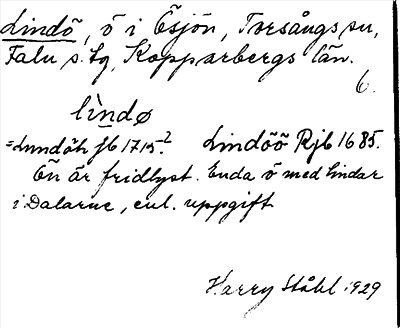 Lindö, ö i Ösjön, Torsångs sn,
Falu s. tg, Kopparbergs län.
6.
lìndø
=Lundöh jb 1715.² Lindöö Rjb 1685.
Ön är fridlyst. Enda ö med lindar
i Dalarne, enl. uppgift
Harry Ståhl 1929